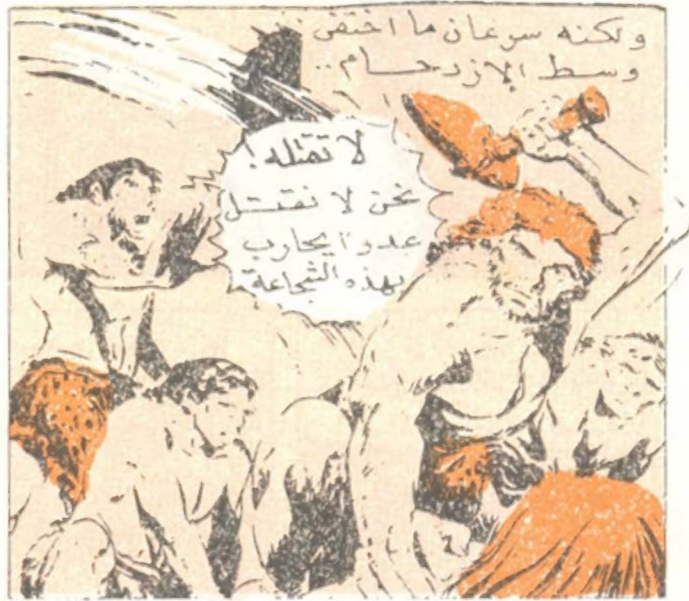 ولكنه سرعان ما اختفى
وسط الازدحام..
لا تقتله!
نحن لا نقتـل
عدوا يحارب
بهذه الشجاعة